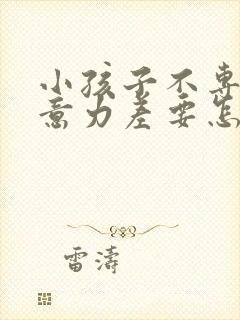 小孩子不專
意力差要怎
雷濤